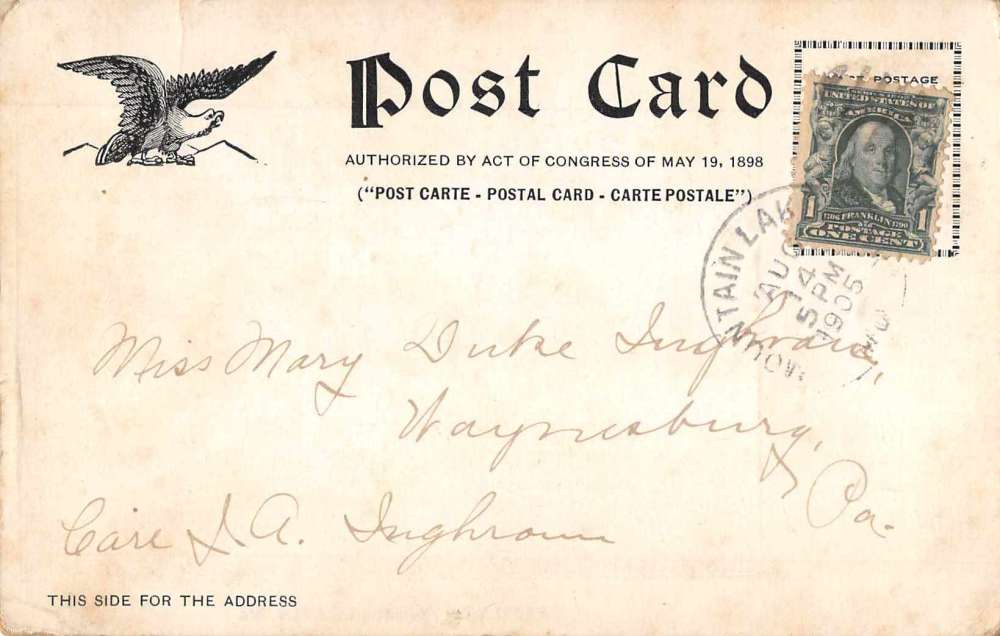 Post Card
POSTAGE
AUTHORIZED BY ACT OF CONGRESS OF MAY 19, 1898
("POST CARTE - POSTAL CARD - CARTE POSTALE")
UNITED STATES OF
AMERICA
1706 FRANKLIN 1790
1 POSTAGE 1
ONE CENT
MOUNTAIN LAK
AUG
14
5 PM
1905
Miss Mary Duke Inghram,
Waynesburg,
Pa.
Care J. A. Inghram
THIS SIDE FOR THE ADDRESS